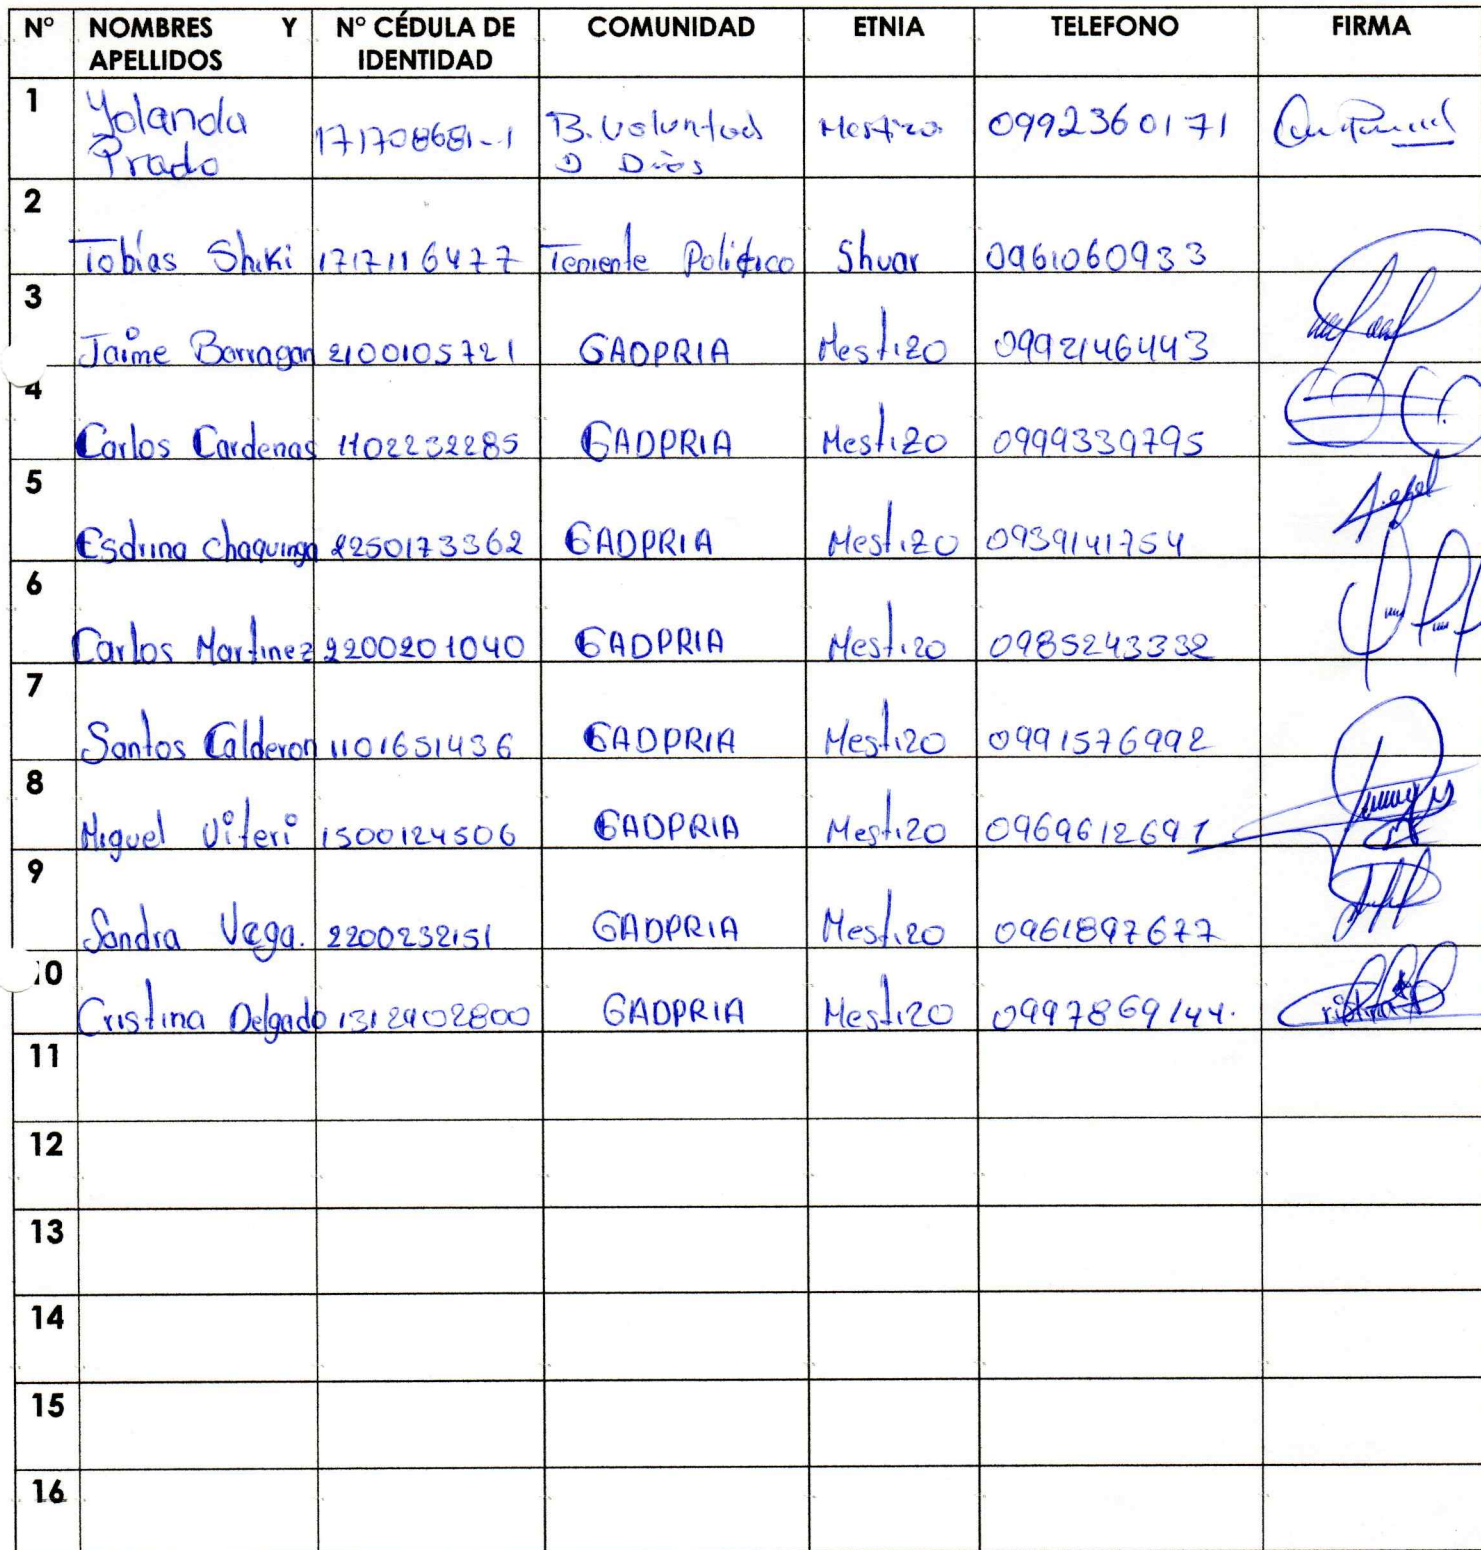 N° NOMBRES Y APELLIDOS N° CÉDULA DE IDENTIDAD COMUNIDAD ETNIA TELEFONO FIRMA
1 Yolanda Prado 171708681-1 B. Voluntad D Dios Mestizo 0992360171
2 Tobías Shiki 1717116477 Teniente Político Shuar 0961060933
3 Jaime Barragan 2100105721 GADPRIA Mestizo 0992146443
4 Carlos Cardenas 1102232285 GADPRIA Mestizo 0999339795
5 Esdrina Chaquinga 2250173362 GADPRIA Mestizo 0939141754
6 Carlos Martinez 2200201040 GADPRIA Mestizo 0985243332
7 Santos Calderon 1101651436 GADPRIA Mestizo 0991576992
8 Miguel Viteri 1500124506 GADPRIA Mestizo 0969612691
9 Sandra Vega. 2200232151 GADPRIA Mestizo 0961897677
10 Cristina Delgado 1312402800 GADPRIA Mestizo 0997869144.
11
12
13
14
15
16